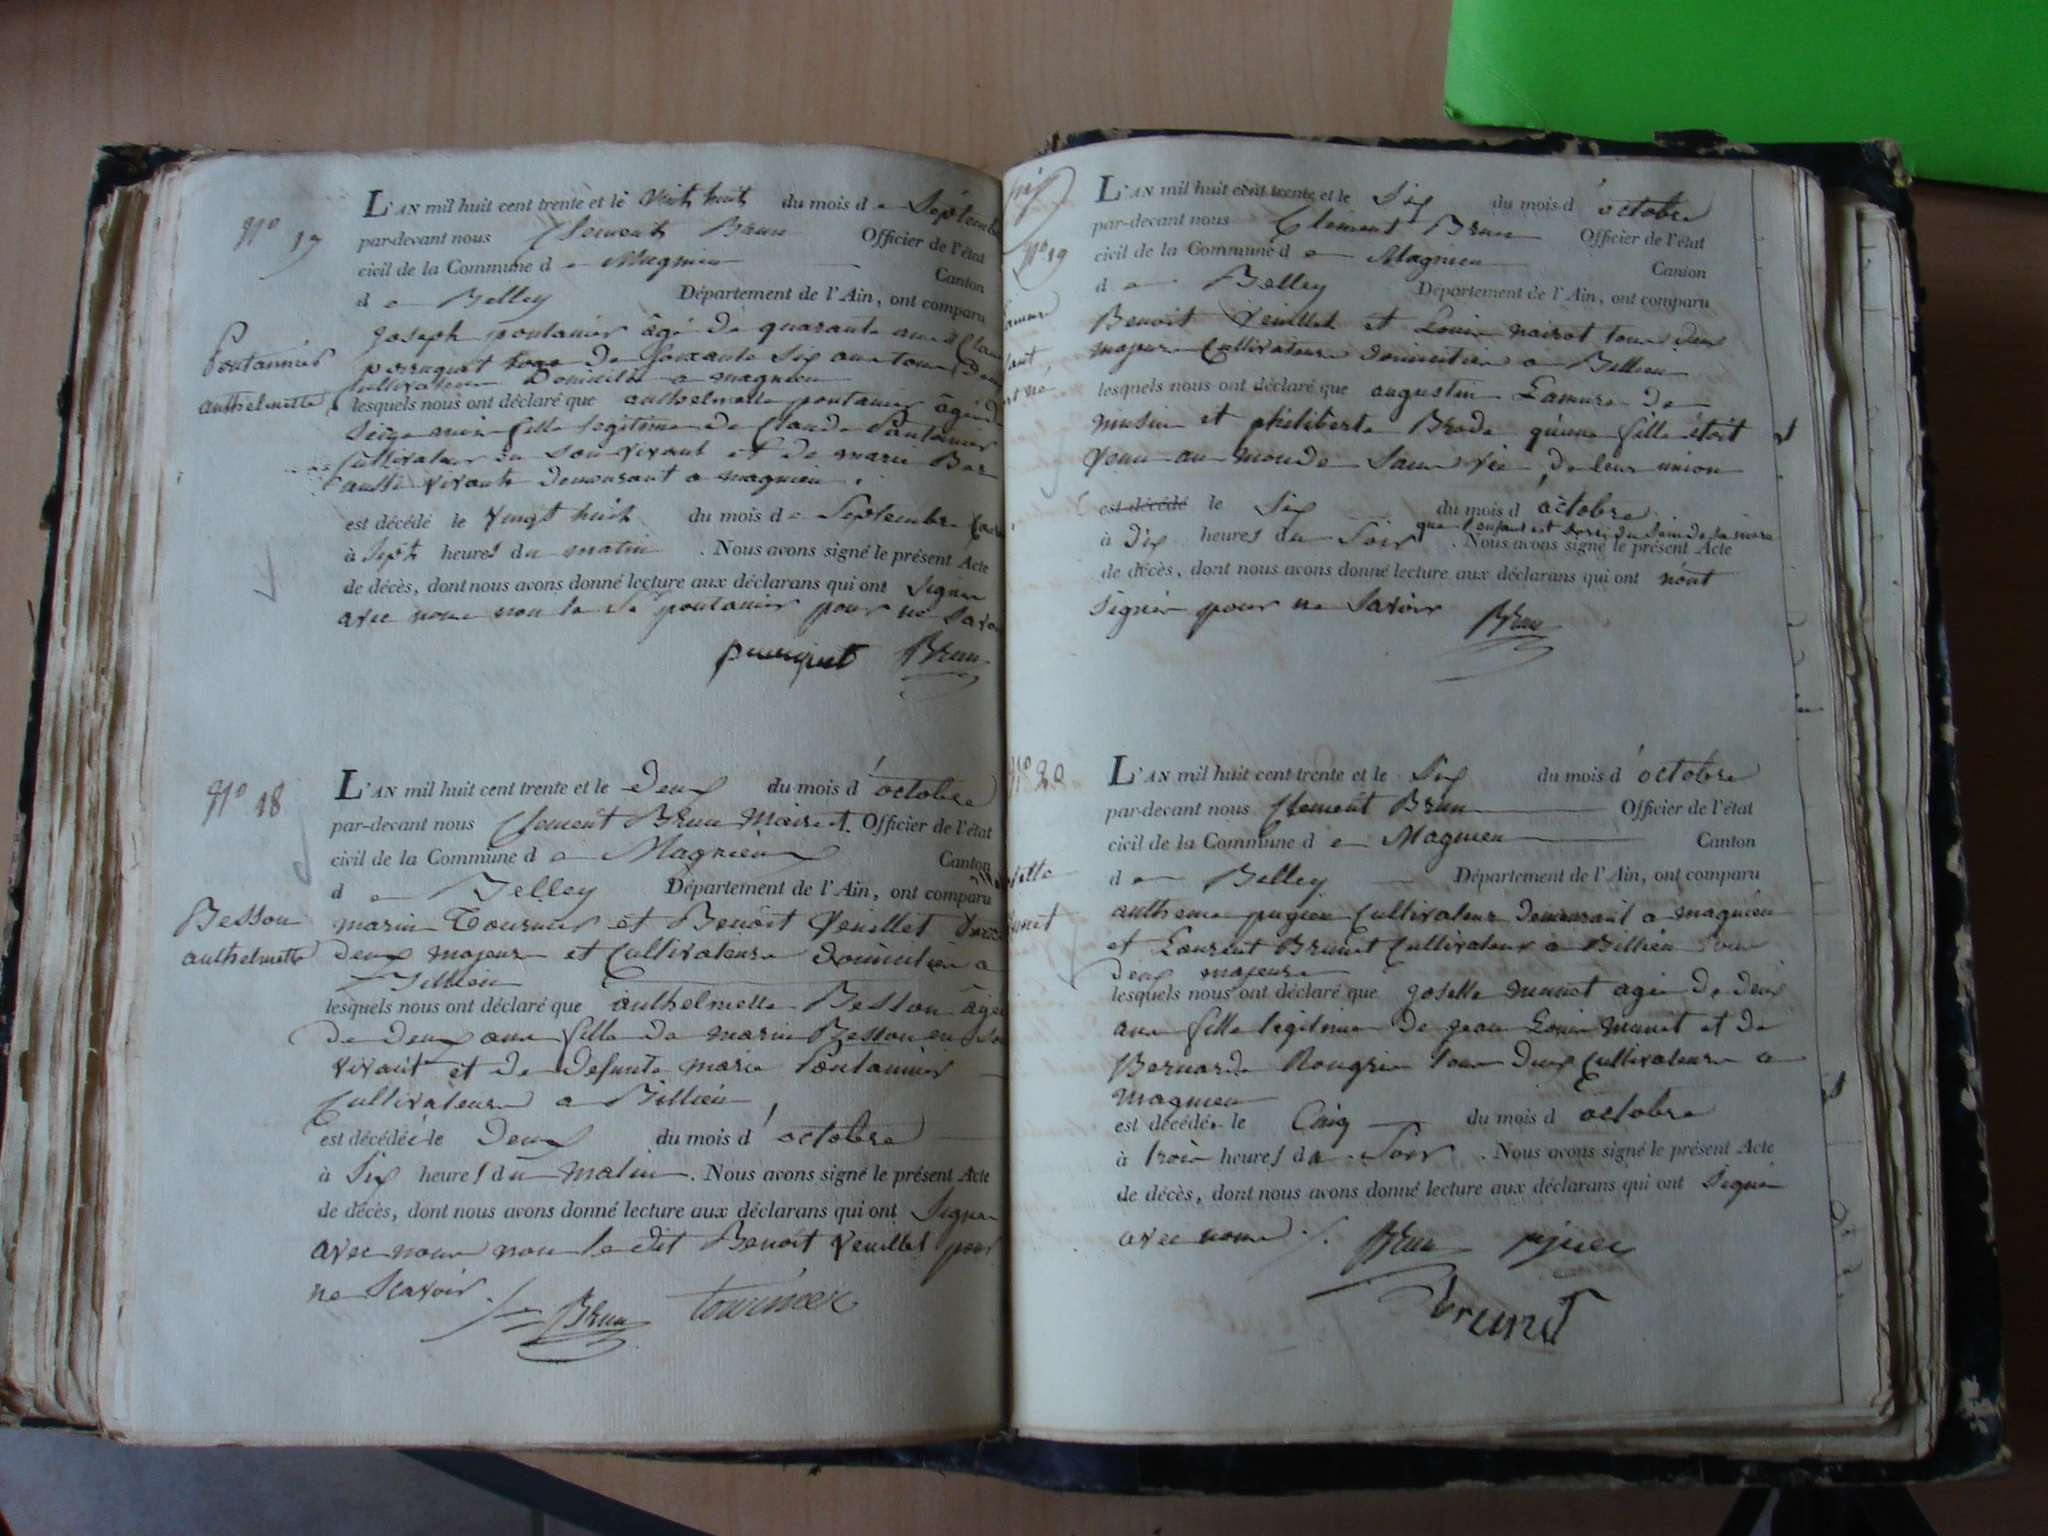 N.o 17
L'AN mil huit cent trente et le vint huit du mois de Septembre
par-devant nous Clement Brun Officier de l'état
civil de la Commune de Magnieu Canton
de Belley Département de l'Ain, ont comparu
Pontannier
anthelmette
joseph pontanier âgé de quarante ans
perruquet de Soixante Six ans tous deux
Cultivateurs Domicilié a magnieu
lesquels nous ont déclaré que anthelmette pontanier âgé de
Seize mois fille legitime de Claude Pontanier
Cultivateur en Son vivant et de marie
aussi vivante demeurant a magnieu
est décédé le vingt huit du mois de Septembre
à Sept heures du matin. Nous avons signé le présent Acte
de décès, dont nous avons donné lecture aux déclarans qui ont Signé
avec nous non le Sr pontanier pour ne Savoir
perruquet Brun
N.o 18
L'AN mil huit cent trente et le Deux du mois d'octobre
par-devant nous Clement Brun Maire et Officier de l'état
civil de la Commune de Magnieu Canton
de Belley Département de l'Ain, ont comparu
Besson
anthelmette
marin Tournier et Benoit Veuillet tous
deux majeurs et Cultivateurs domiciliés a
Billieu
lesquels nous ont déclaré que anthelmette Besson âgée
de deux ans fille de marin Besson en son
vivant et de defunte marie Pontannier
Cultivateurs a Billieu
est décédée le Deux du mois d'octobre
à Six heures du matin. Nous avons signé le présent Acte
de décès, dont nous avons donné lecture aux déclarans qui ont Signé
avec nous non le dit Benoit Veuillet pour
ne Scavoir.
Brun tournier
N.o 19
L'AN mil huit cent trente et le Six du mois d'octobre
par-devant nous Clement Brun Officier de l'état
civil de la Commune de Magnieu Canton
de Belley Département de l'Ain, ont comparu
Benoit Veuillet et Louis nairot tous deux
majeurs Cultivateurs domiciliés a Billieu
lesquels nous ont déclaré que augustin Lamure de
musin et philiberte Brode qu'une fille étoit
venu au monde Sans vie de leur union
est décédé le Six du mois d'octobre
que l'enfant est Sorti du Sein de Sa mere
à dix heures du Soir. Nous avons signé le présent Acte
de décès, dont nous avons donné lecture aux déclarans qui ont n'ont
Signés pour ne Savoir Brun
N.o 20
L'AN mil huit cent trente et le Six du mois d'octobre
par-devant nous Clement Brun Officier de l'état
civil de la Commune de Magnieu Canton
de Belley Département de l'Ain, ont comparu
antheme pugieu Cultivateur demeurant a magnieu
et Laurent Brunet Cultivateur a Billieu tous
deux majeurs
lesquels nous ont déclaré que josette munet agée de deux
ans fille legitime de jean Louis munet et de
Bernarde Rougrie tous deux Cultivateurs a
magnieu
est décédée le Cinq du mois d octobre
à trois heures du Soir. Nous avons signé le présent Acte
de décès, dont nous avons donné lecture aux déclarans qui ont Signés
avec nous.
Brun pujieu
brunet